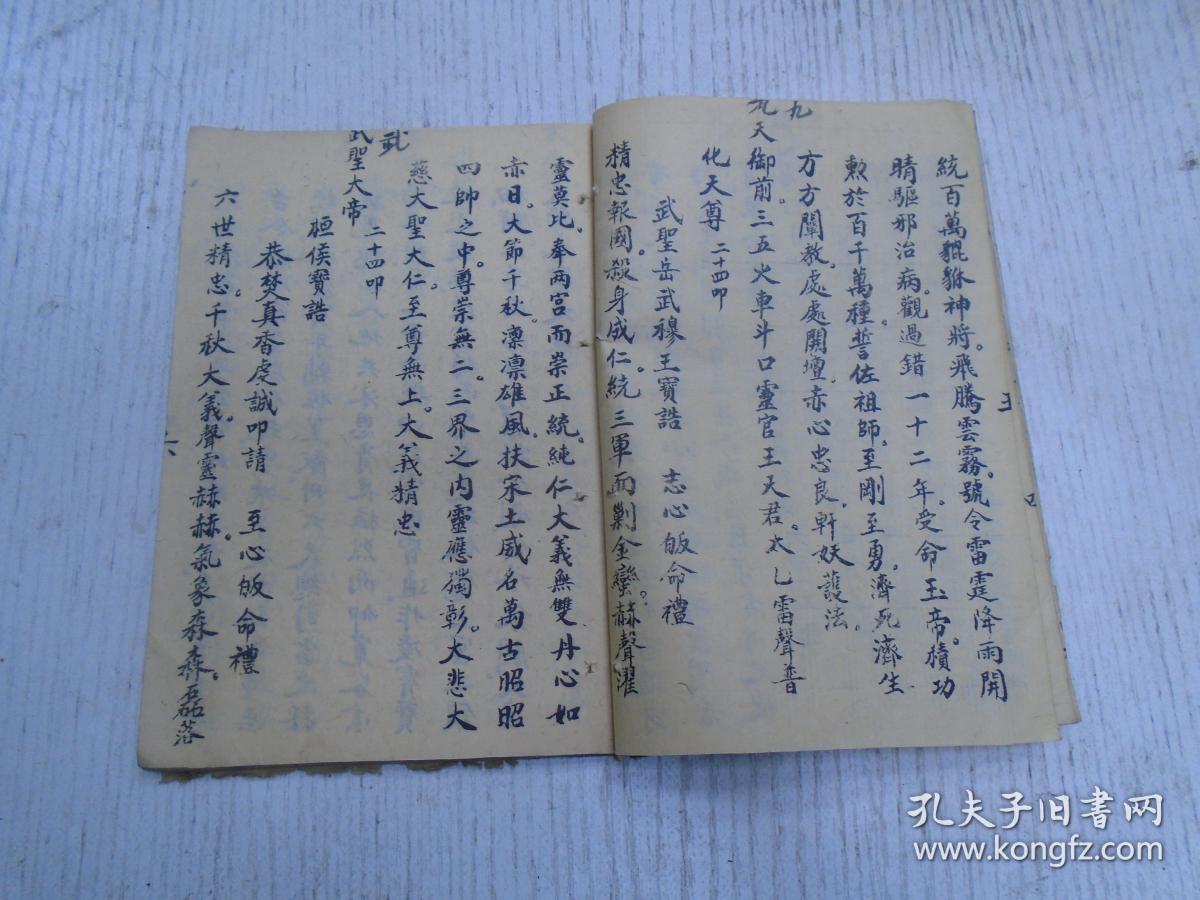 統百萬貔貅神將。飛騰雲霧。號令雷霆降雨開
晴驅邪治病。觀過錯一十二年。受命玉帝。積功
敕於百千萬種。誓佐祖師。至剛至勇。濟死濟生
方方闡教。處處開壇。赤心忠良。軒妖護法。
九
九天御前。三五火車斗口靈官王天君。太乙雷聲普
化天尊 二十四叩
武聖岳武穆王寶誥 志心皈命禮
精忠報國。殺身成仁。統三軍而剿金蠻。赫聲濯
靈莫比。奉兩宫而崇正統。純仁大義無雙丹心如
赤日。大節千秋。凛凛雄風。扶宋土威名萬古昭昭
四帥之中。尊崇無二。三界之内靈應獨彰。大悲大
慈大聖大仁。至尊無上。大義精忠
武
武聖大帝 二十四叩
桓侯寶誥
恭焚真香虔誠叩請 至心皈命禮
六世精忠。千秋大義。聲靈赫赫。氣象森森。磊落
孔夫子旧书网
www.kongfz.com